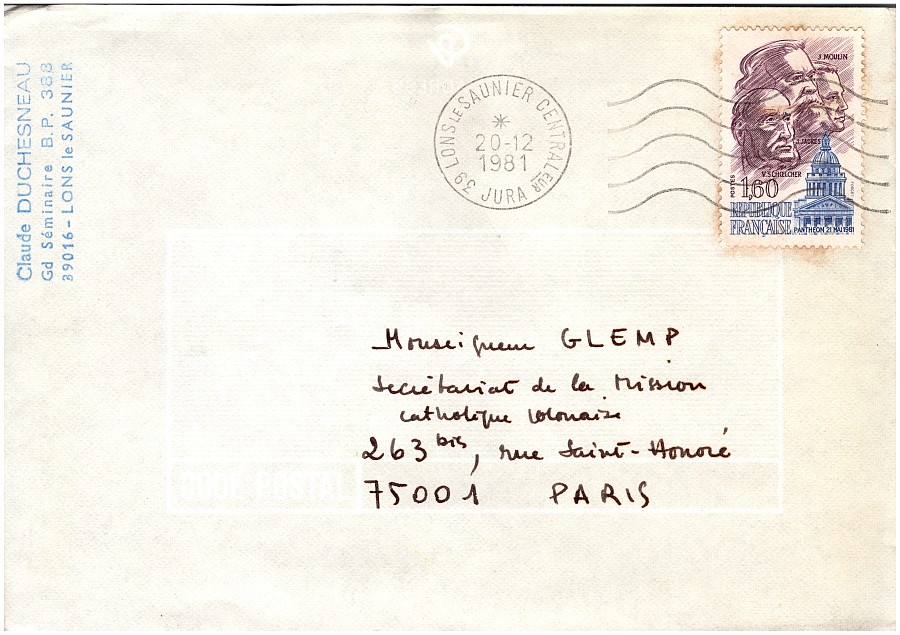 Claude DUCHESNEAU
Gd Séminaire B.P. 388
39016 - LONS le SAUNIER
39 LONS LE SAUNIER CENTRALEUR
20-12
1981
JURA
J. MOULIN
J. JAURES
V. SCHŒLCHER
POSTES
1,60
REPUBLIQUE
FRANÇAISE
PANTHEON 21 MAI 1981
Monseigneur GLEMP
Secrétariat de la Mission
Catholique Polonaise
263 bis, rue Saint-Honoré
CODE POSTAL
75001 PARIS